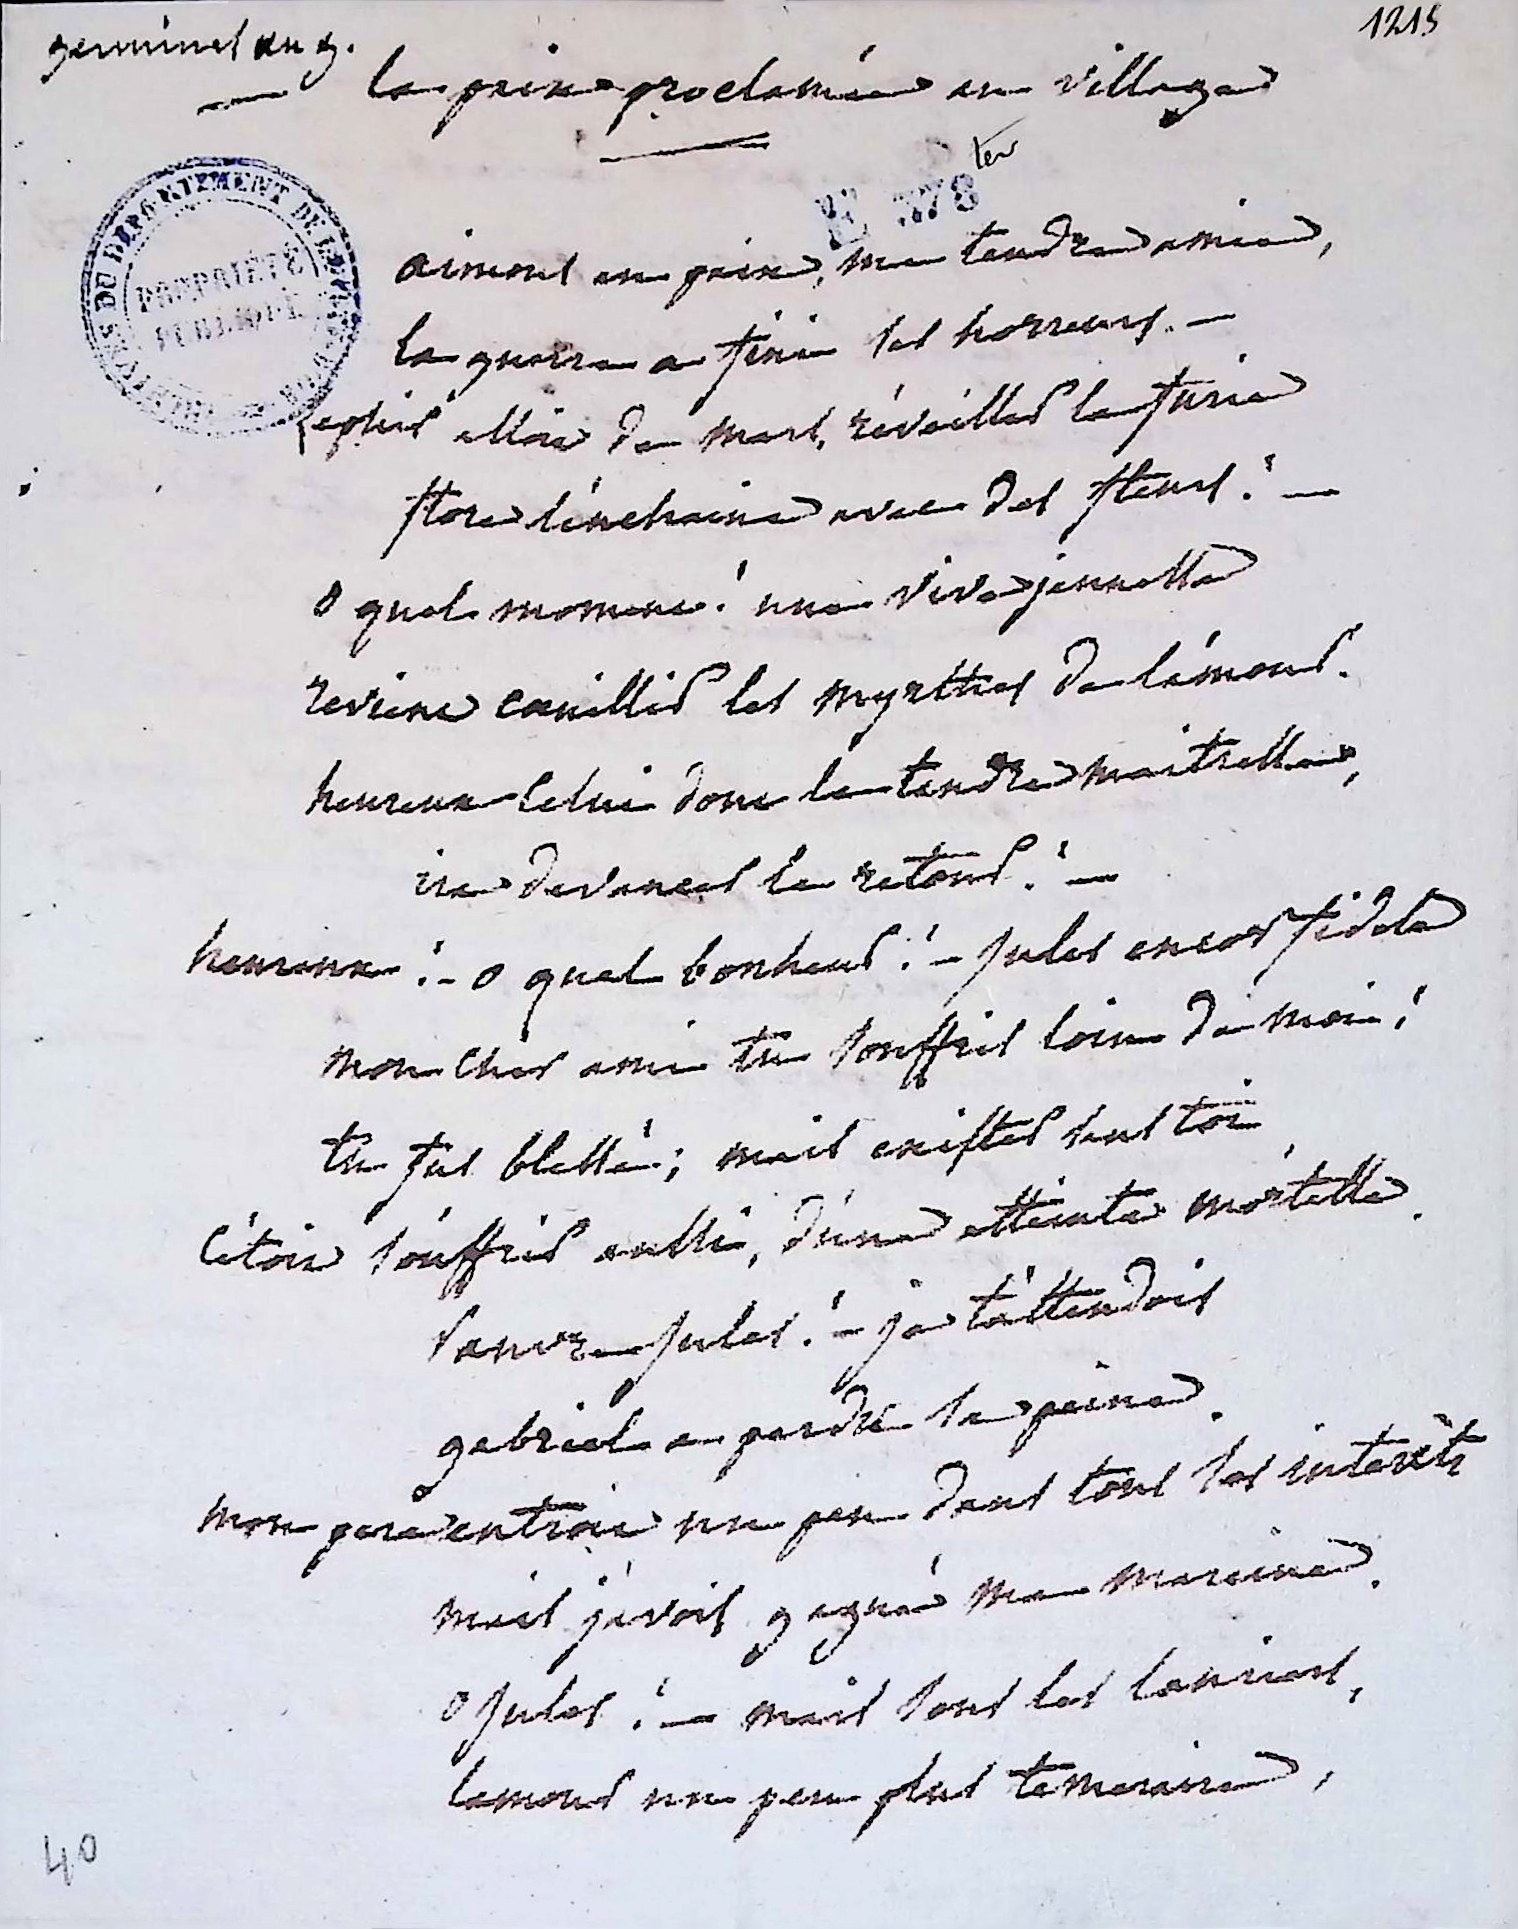 1215
germinal an 9.
la paix proclamée au village
E 378 ter
ARCHIVES DU DÉPARTEMENT DE
PROPRIÉTÉ
PUBLIQUE
aimons en paix, ma tendre amie,
la guerre a fini ses horreurs. —
alloit de mars, réveiller la furie
flore l'enchaine avec des fleurs! —
o quel moment! une vive jeunesse
revient cueillir les myrthes de l'amour.
heureux celui dont la tendre maitresse,
ira devancer le retour! —
heureux! – o quel bonheur! – jules encor fidele
mon cher ami tu souffris loin de moi!
tu fus blessé; mais exister sans toi
c'étoit souffrir aussi, d'une atteinte mortelle.
pauvre jules! – je t'attendois
gabriel a perdu sa peine.
mon pere entroit un peu dans tous ses interêts
mais j'avois gagné ma maraine.
o jules! — mais sous les lauriers,
lamour un peu plus temeraire,
40